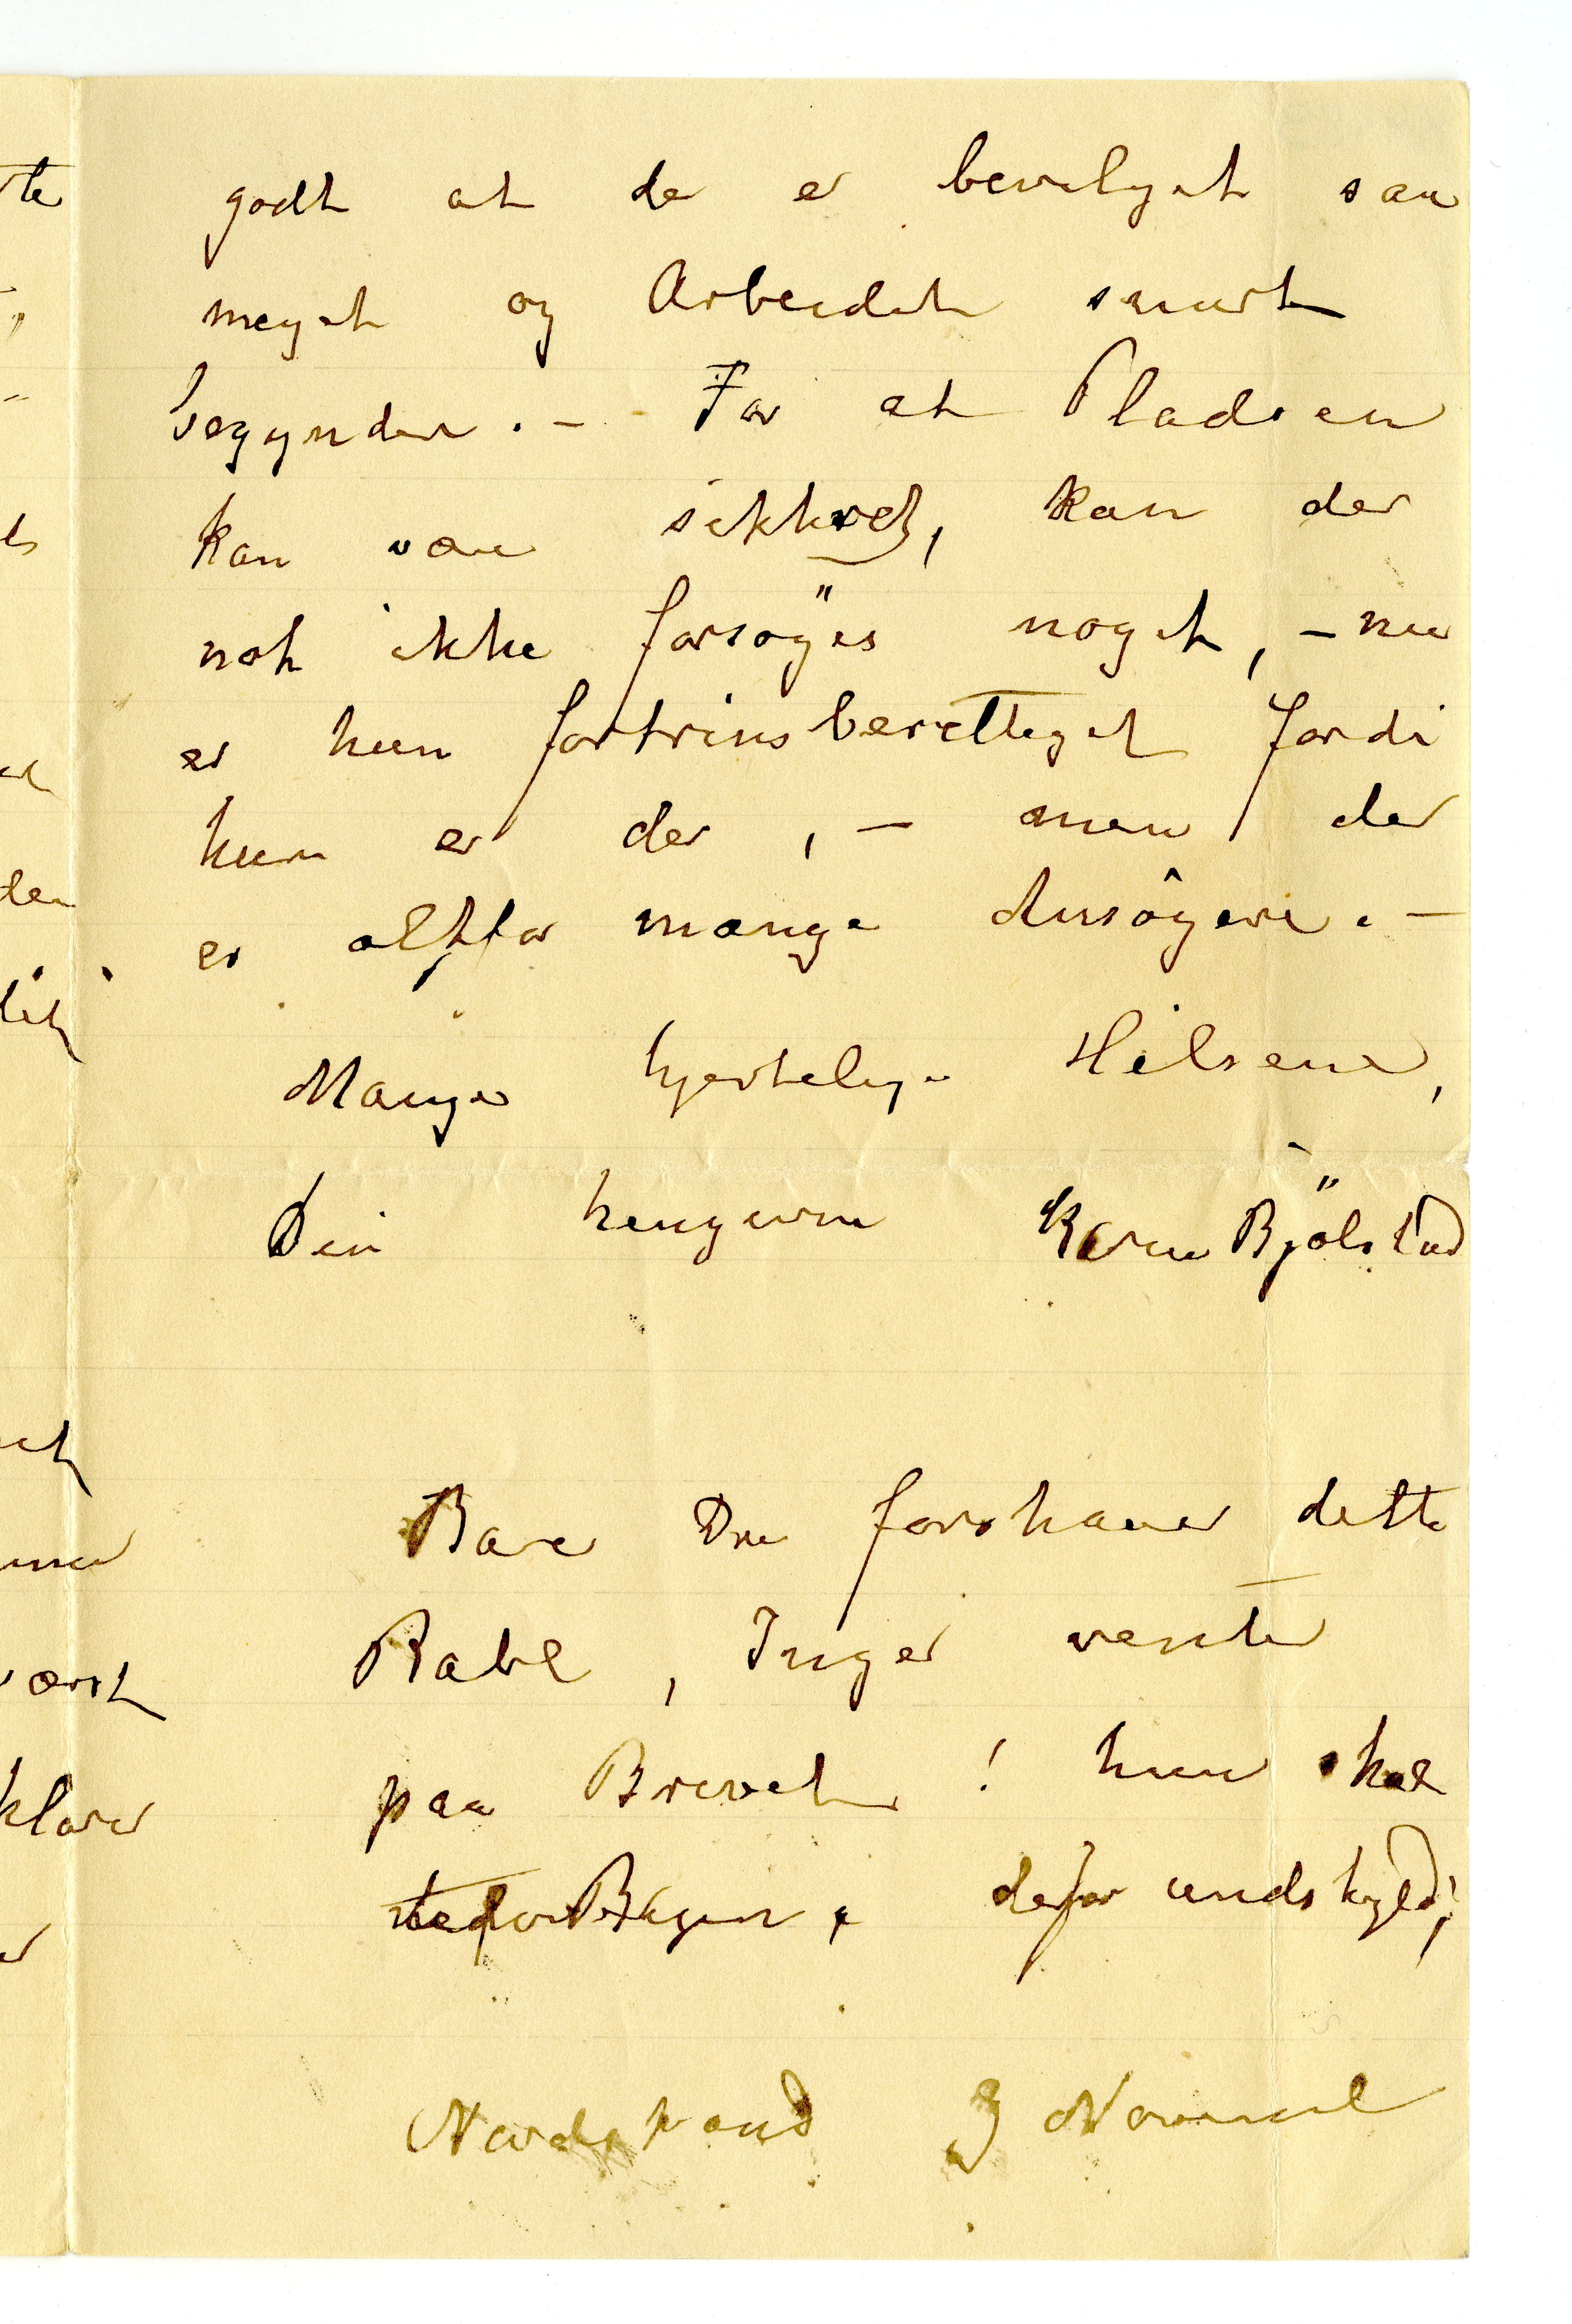 godt at de er bevilget saa
meget og Arbeidet snart
begynder. - For at Pladsen
kan være sikkret, kan der
nok ikke forsøges noget, - nu
er hun fortrinsberettiget fordi
hun er der, - men der
er altfor mange Ansøgere. -
Mange hjertelige Hilsener,
Din hengivne Karen Bjölstad
Bare Du forstaaer dette
Rabl, Inger venter
paa Brevet! hun skal
Bagn, derfor undskyld!
Nordstrand 3